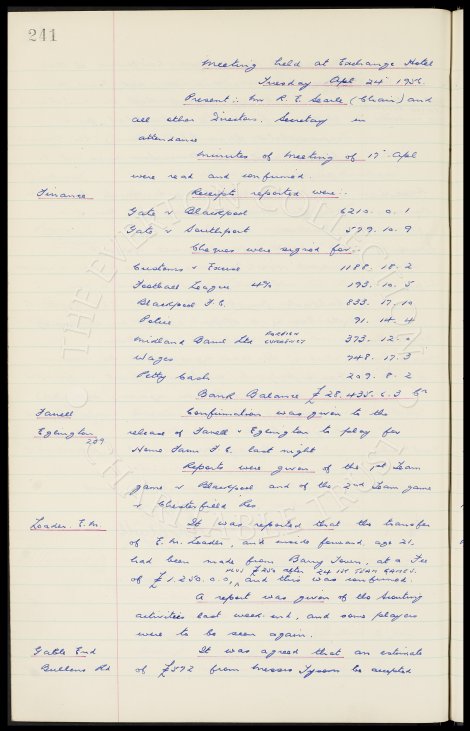 241
Meeting held at Exchange Hotel
Tuesday Apl 24th 1956.
Present :- Mr R. E. Searle (Chair) and
all other Directors. Secretary in
attendance
Minutes of Meeting of 17th Apl
were read and confirmed.
Finance Receipts reported were :-
Gate v Blackpool 6210. 0. 1
Gate v Southport 579. 10. 9
Cheques were signed for :-
Customs & Excise 1188. 18. 2
Football League 4% 193. 10. 5
Blackpool F.C. 833. 17. 10
Police 91. 14. 4
Midland Bank Ltd FOREIGN CURRENCY 373. 12. 0
Wages 748. 17. 3
Petty Cash 209. 8. 2
Bank Balance £28,435. 6. 3 Cr
Farrell Confirmation was given to the
Eglington 209 release of Farrell & Eglington to play for
Home Farm F.C. last night
Reports were given of the 1st Team
game v Blackpool and of the 2nd Team game
v Chesterfield Res
Leader. E.M. It was reported that the transfer
of E.M. Leader, and inside forward, age 21.
had been made from Barry Town, at a Fee
PLUS £250 after 24 1ST TEAM GAMES.
of £1.250.0.0, and this was confirmed.
A report was given of the Scouting
activities last week-end, and some players
were to be seen again.
Gable End It was agreed that an estimate
Bullens Rd of £572 from Messrs Tyson be accepted
THE EVERTON COLLECTION
CHARITABLE TRUST